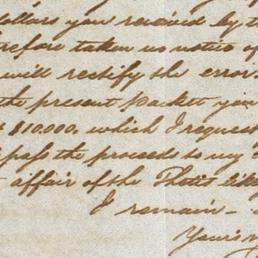 dollars you received by t
erefore taken no notice of
will rectify the error
the present packett you
$10.000. which I request
pass the proceeds to my
affair of the Thetis
I remain -
Yours